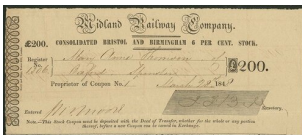 Midland Railway Company.
£200. CONSOLIDATED BRISTOL AND BIRMINGHAM 6 PER CENT. STOCK.
Register No. Mary Anne of
Oxford Spinster £200.
Proprietor of Coupon No. 1 March 28th 1848
Entered Secretary.
Note.—This Stock Coupon must be deposited with the Deed of Transfer, whether for the whole or any portion
thereof, before a new Coupon can be issued in Exchange.